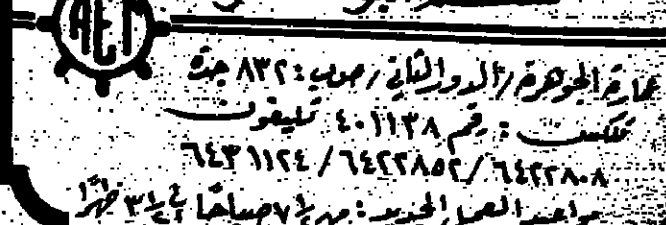 AEM
عمارة الجوهرة / الدور الثاني / ص.ب : ٨٣٢ جدة
تلكس : رقم ٤٠١١٣٨ تليفون
٦٤٢٢٨٠٨ / ٦٤٢٢٨٥٢ / ٦٤٣١١٢٤
مواعيد العمل الجديد : من ٧ صباحًا ٣ ظهرًا